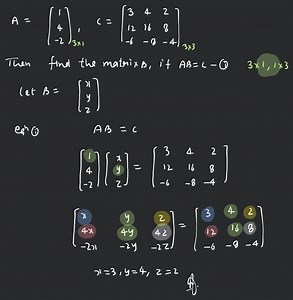 A = [1 4 -2] 3x1 , C = [3 4 2 12 16 8 -6 -8 -4] 3x3
Then find the matrix B, if AB = C - ① 3x1, 1x3
Let B = [x y z]
eqn ① AB = C
[1 4 -2] [x y z] = [3 4 2 12 16 8 -6 -8 -4]
[x y z 4x 4y 4z -2x -2y -2z] = [3 4 2 12 16 8 -6 -8 -4]
x=3, y=4, z=2